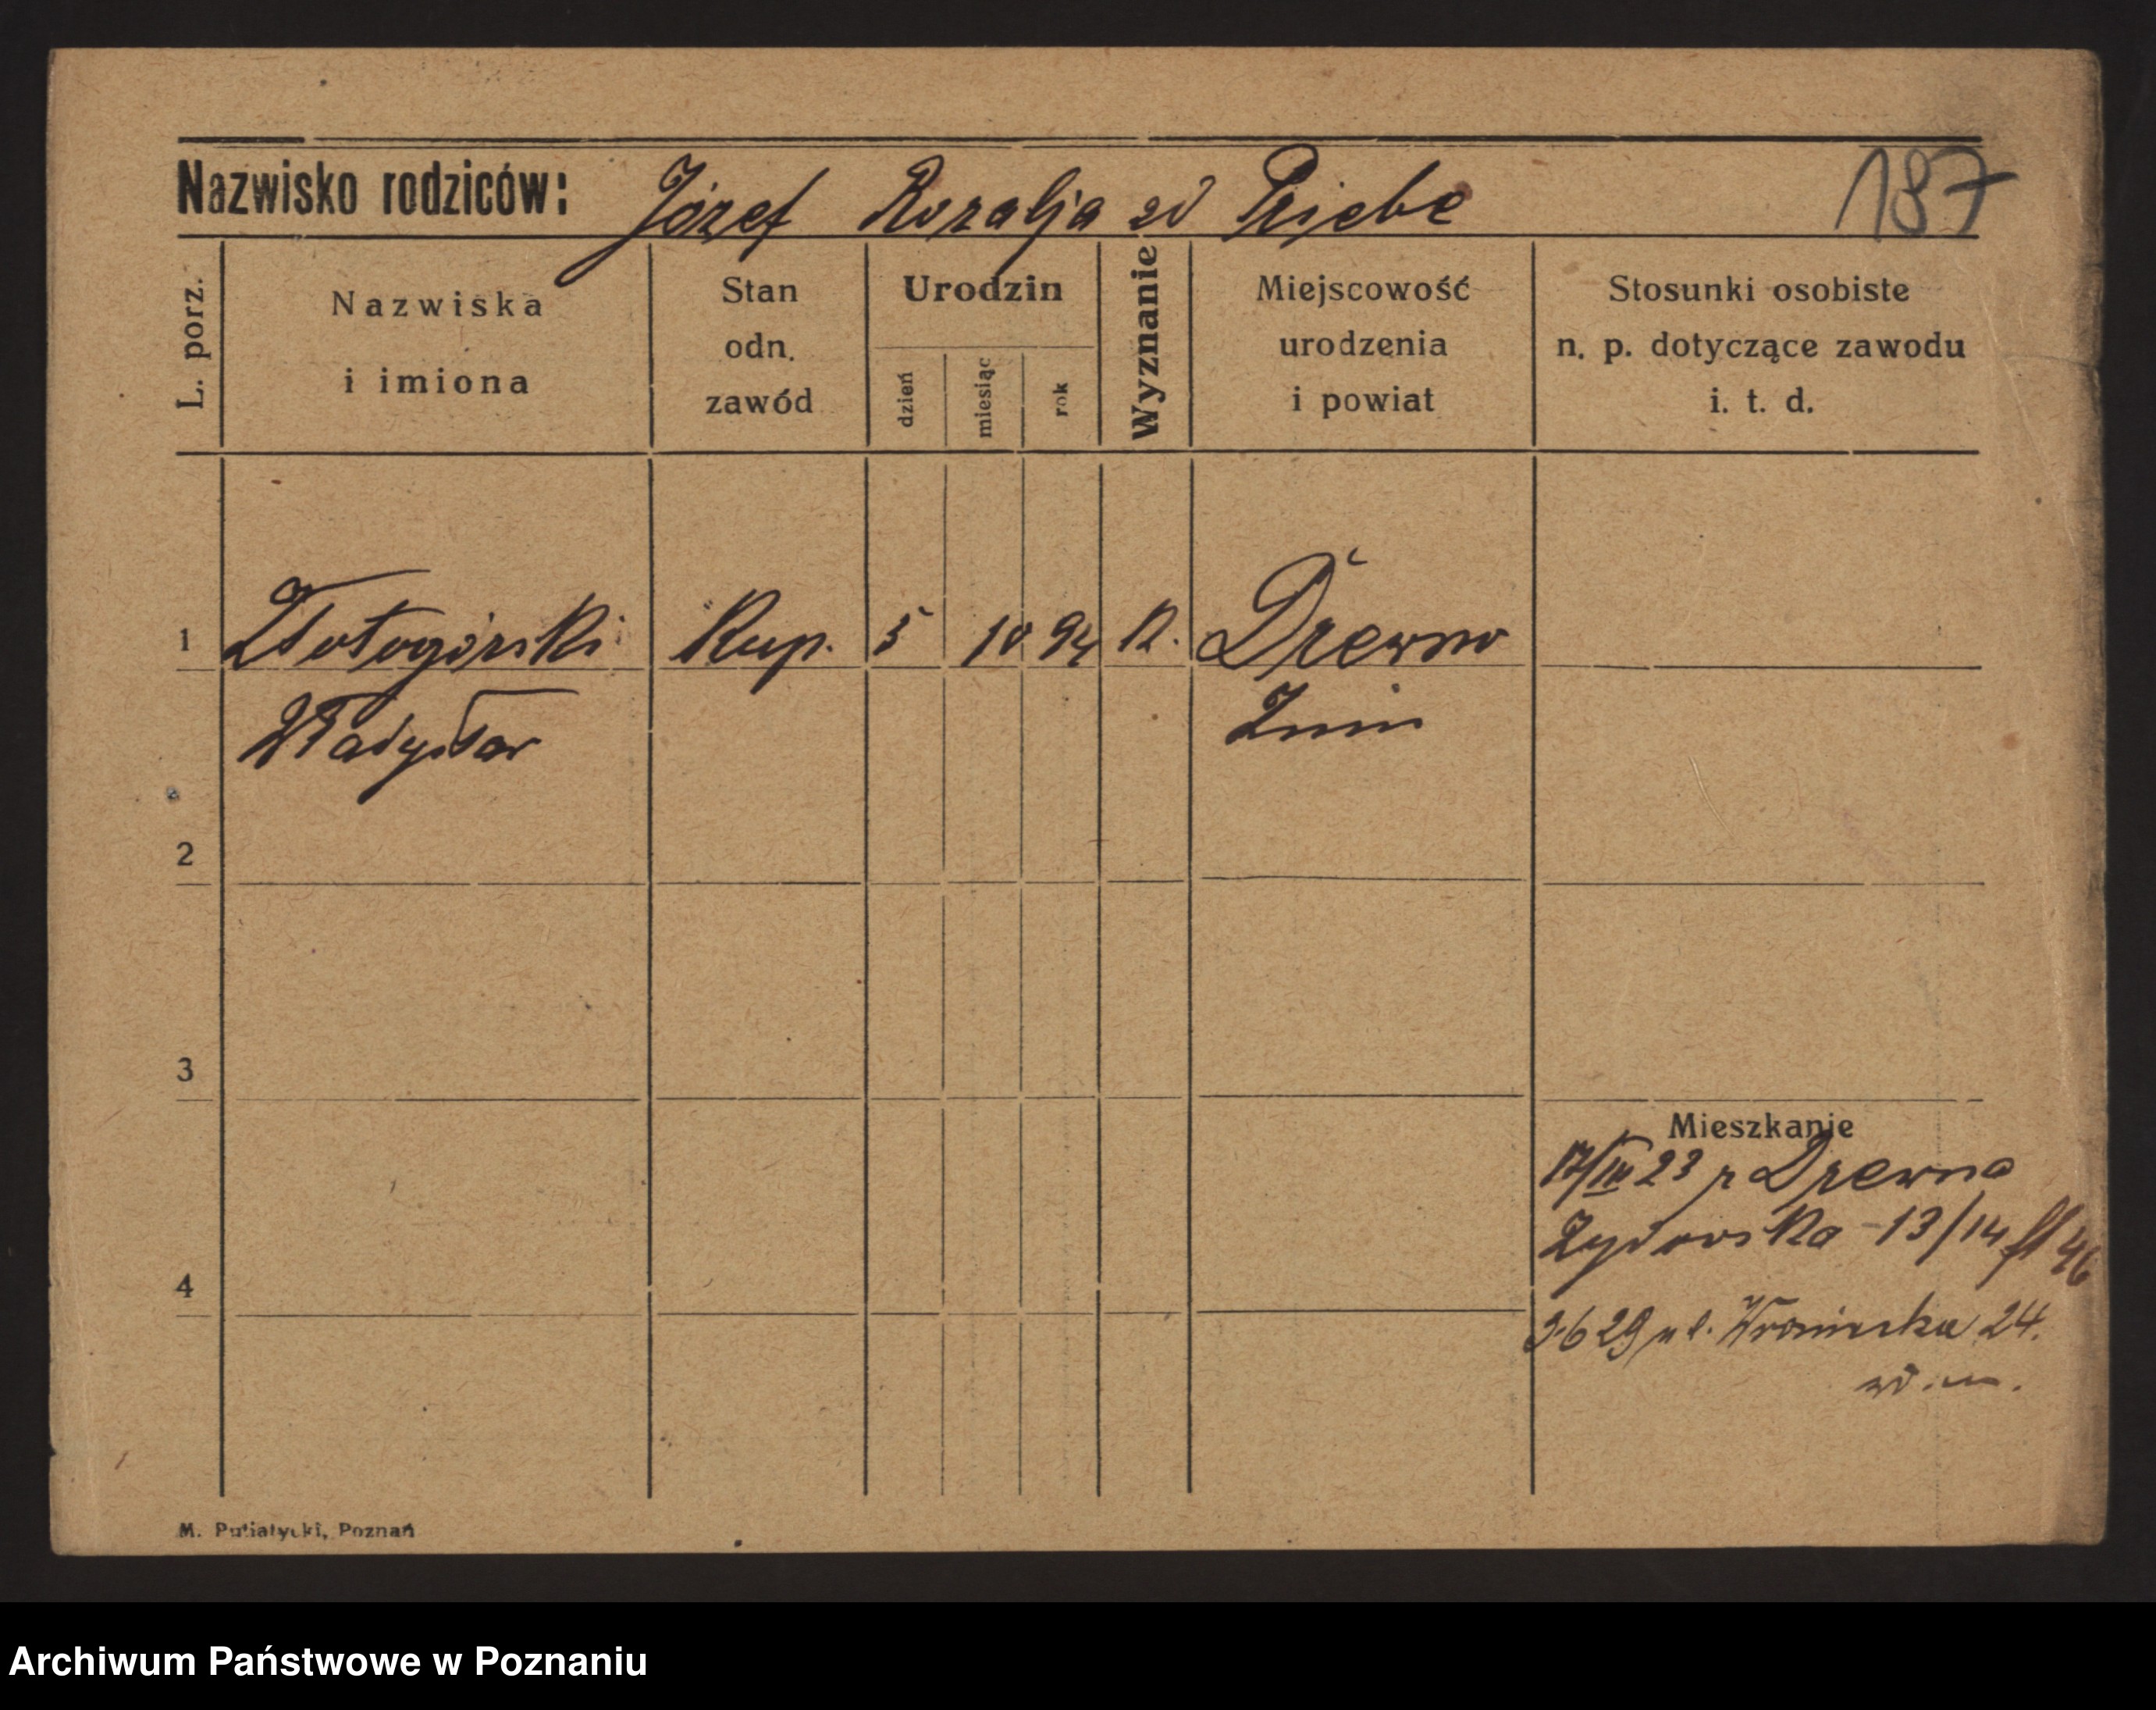 Nazwisko rodziców: Józef Rozalja zd Priebe
187
L. porz.
Nazwiska
i imiona
Stan
odn.
zawód
Urodzin
dzień
miesiąc
rok
Wyznanie
Miejscowość
urodzenia
i powiat
Stosunki osobiste
n. p. dotyczące zawodu
i. t. d.
1 Złotogórski Kup. 5 10 94 K. Drewno
Władysław Żnin
2
3
Mieszkanie
17/IV 23 z Drewna
Żydowska 13/14
4
3.6 29 ul. Wroniecka 24.
M. Putiatycki, Poznań
Archiwum Państwowe w Poznaniu